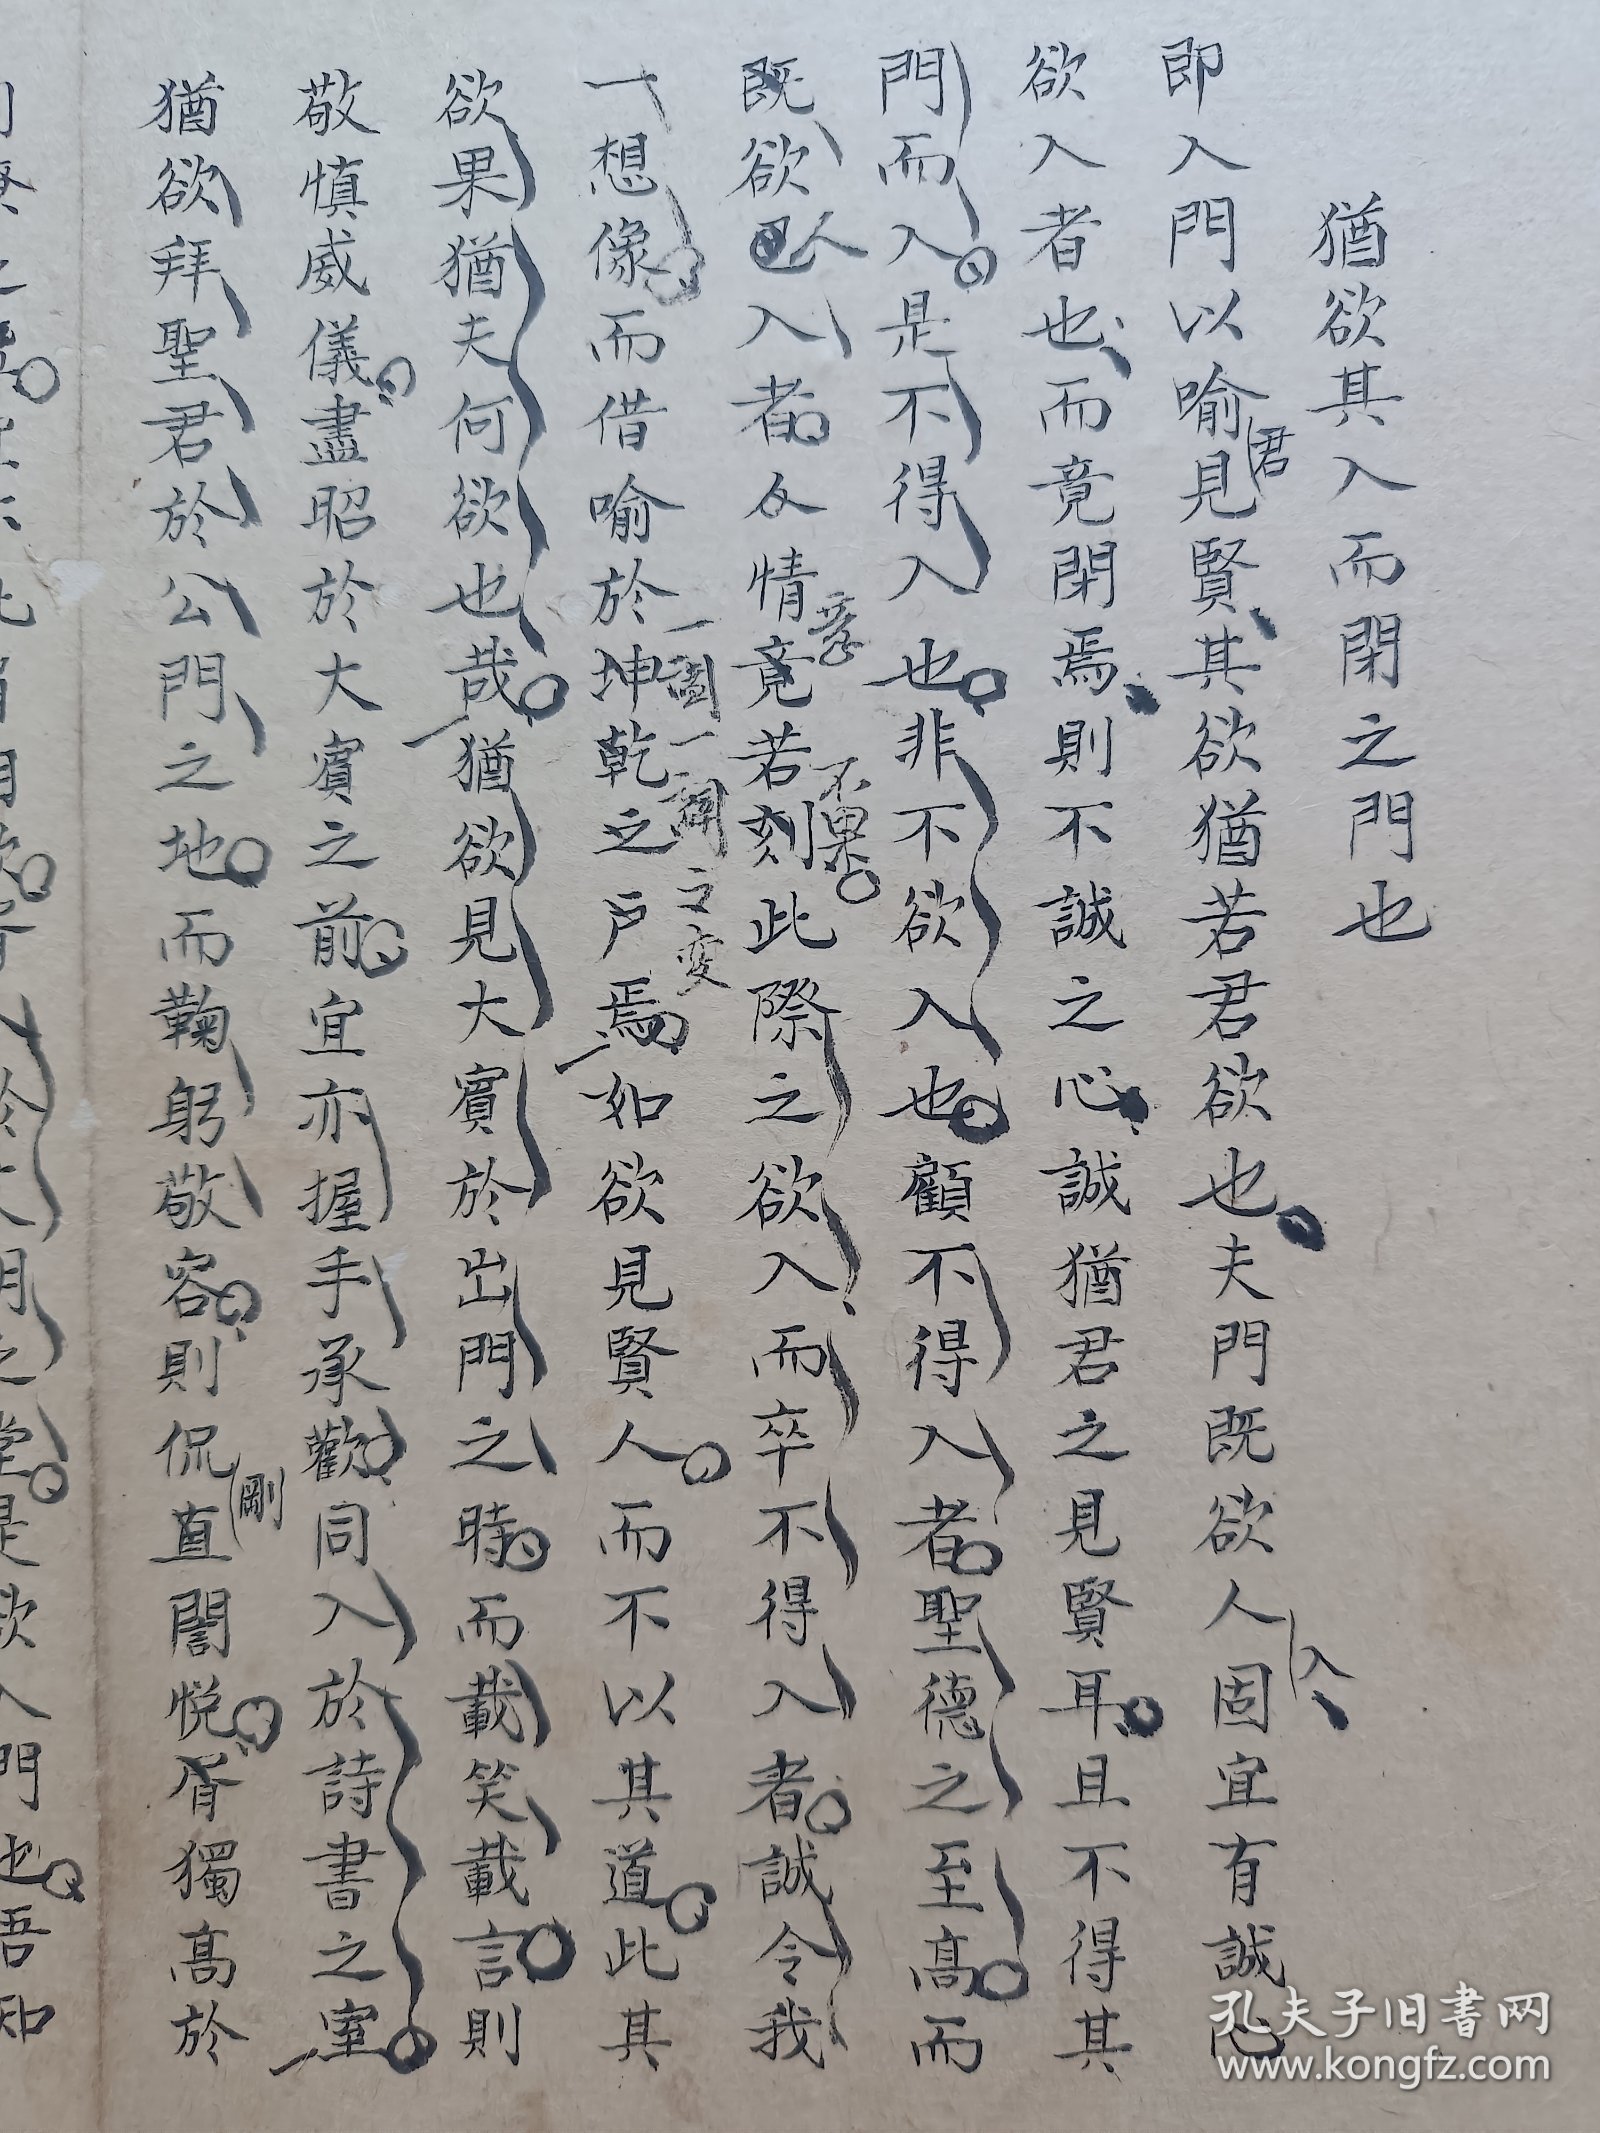 猶欲其入而閉之門也
即入門以喻君見賢其欲猶若君欲也夫門既欲人入固宜有誠心
欲入者也而竟閉焉則不誠之心誠猶君之見賢耳且不得其
門而入是不得入也非不欲入也顧不得入者聖德之至高而
既欲人入者反情竟意若刻不果此際之欲入而卒不得入者誠令我
一想像而借喻於坤乾之戶焉如欲見賢人而不以其道此其
一之變
欲果猶夫何欲也哉猶欲見大賓於出門之時而載笑載言則
敬慎威儀盡昭於大賓之前宜亦握手承歡同入於詩書之室
猶欲拜聖君於公門之地而鞠躬敬容則侃剛直誾悅胥獨高於
是欲入門也吾知
孔夫子旧书网
www.kongfz.com